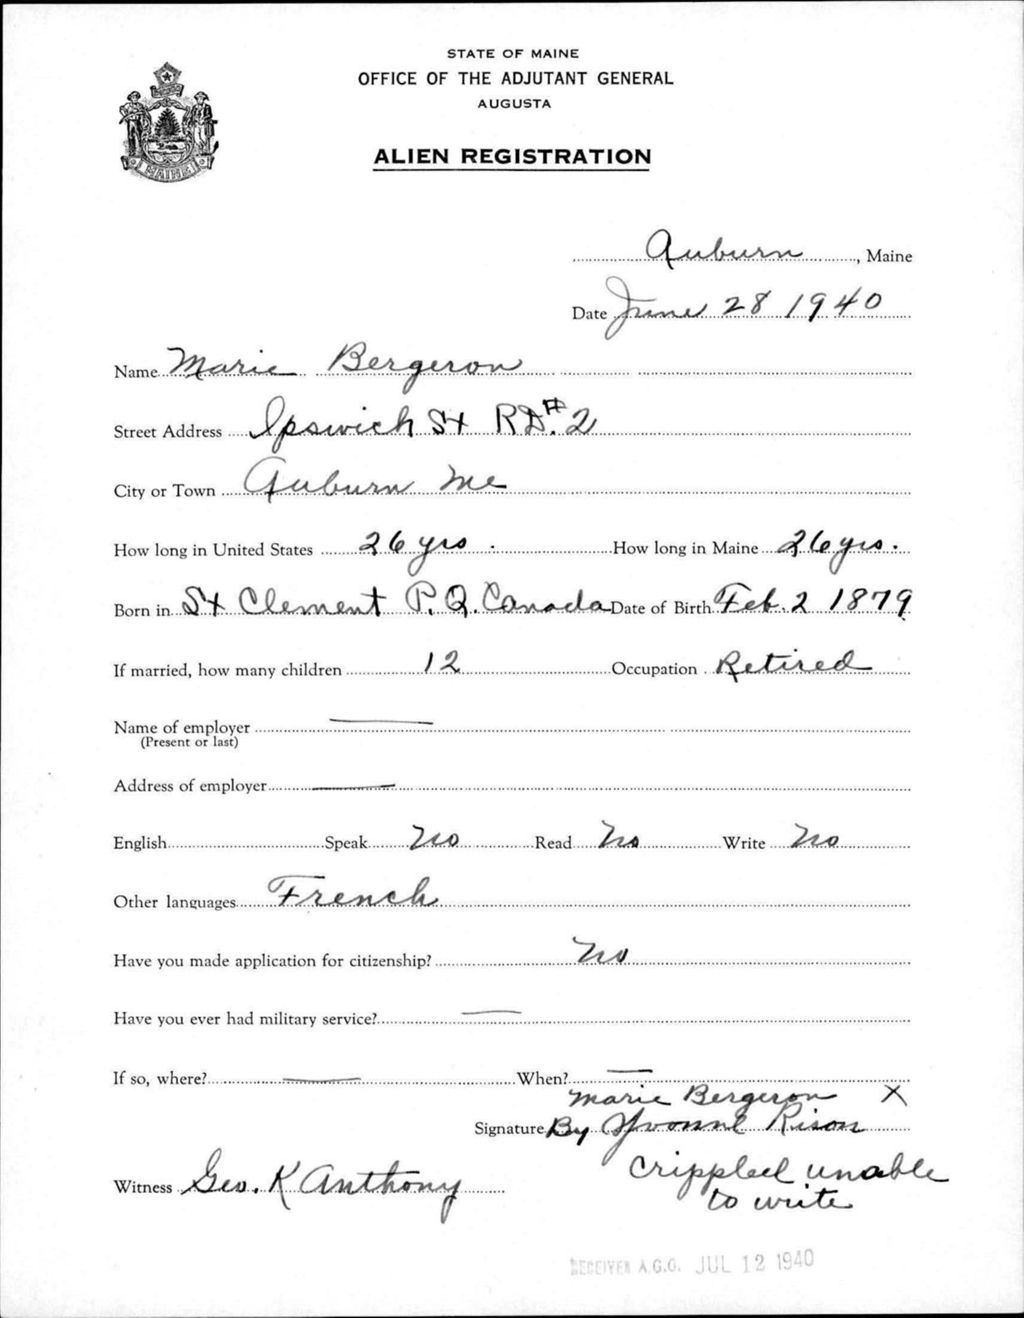 STATE OF MAINE
OFFICE OF THE ADJUTANT GENERAL
AUGUSTA
ALIEN REGISTRATION
MAINE
Auburn, Maine
Date June 28 1940
Name Marie Bergeron
Street Address Ipswich St RD.#2
City or Town Auburn Me
How long in United States 26 yrs. How long in Maine 26 yrs.
Born in St Clement P.Q. Canada Date of Birth Feb. 2 1879
If married, how many children 12 Occupation Retired
Name of employer
(Present or last)
Address of employer
English Speak No Read No Write No
Other languages French
Have you made application for citizenship? No
Have you ever had military service?
If so, where? When?
Marie Bergeron X
Signature By Yvonne Rison
Witness Geo. K Anthony Crippled unable
to write
RECEIVED A.G.O. JUL 12 1940